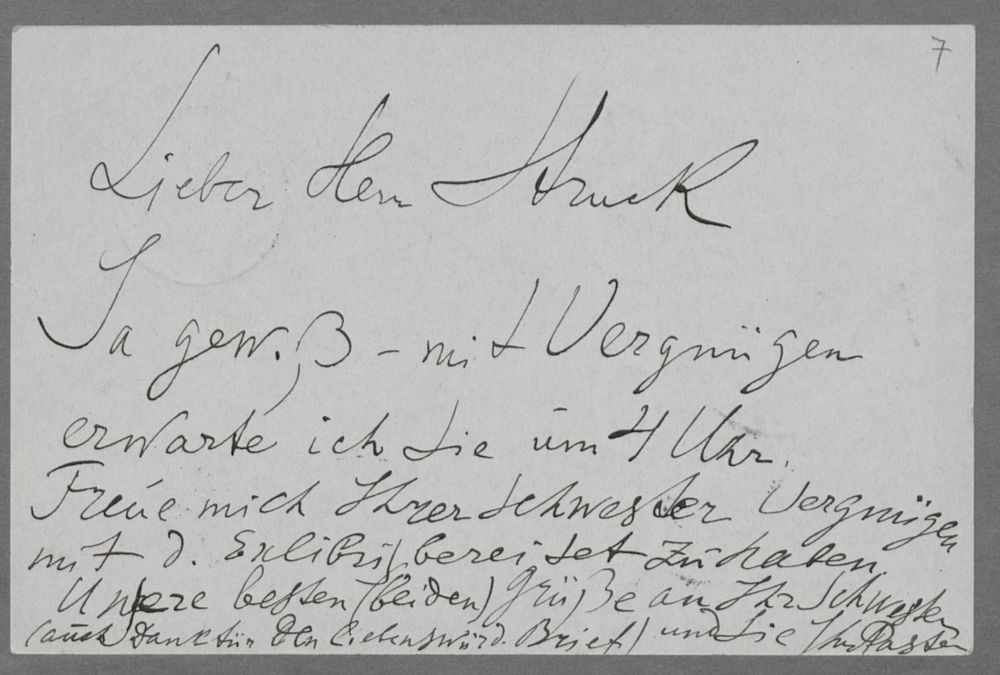 7
Lieber Herr Struck
Ja gewiß – mit Vergnügen
erwarte ich Sie um 4 Uhr.
Freue mich Ihrer Schwester Vergnügen
mit d. Exlibris bereitet zu haben.
Unsere besten (beiden) Grüße an Ihr Schwester
(auch Dank für den liebenswürd. Brief) und Sie Ihr Pasternak